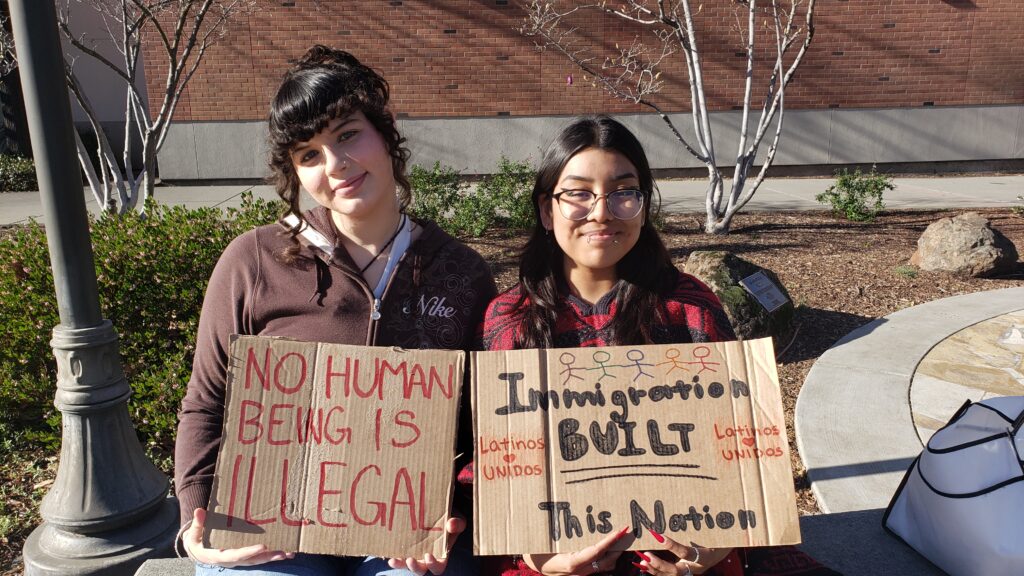 Nike
NO HUMAN
BEING IS
ILLEGAL
Immigration
BUILT
This Nation
Latinos
UNIDOS
Latinos
UNIDOS